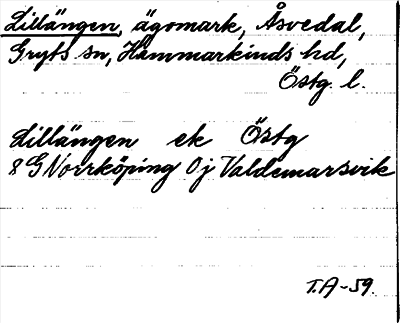 Lillängen, ägomark, Åsvedal,
Gryts sn, Hammarkinds hd,
Östg. l.
Lillängen ek Östg
8 G Norrköping Oj Valdemarsvik
T.A-59.